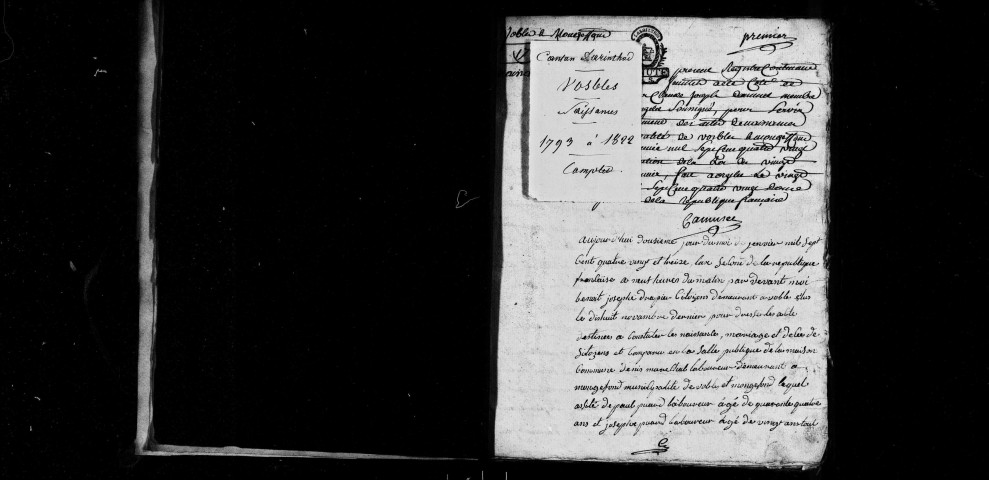 Voble & Mongefon
premier
Canton Darinthod
Vosbles
Naissances
1793 à 1822
Complet
premier Registre Contenant
feuillet a été Coté de
Claude Joseph membre
Soussigné, pour Servir
des actes de naissance
de vosbles & mongeffon
mil Sept Cent quatre vingt
de la Loi du vingt
fait a orgelet Le vingt
Sept Cent quatre vingt Douze
de la République française
Camuset
aujourd'hui dousieme jour du moi de janvier mil Sept
Cent quatre vingt et treize, l'an Second de la republique
francaise a neuf heures du matin par devant moi
benoit joseph drapier Citoyen demeurant a voble elus
le dishuit novambre dernier pour dresser les acte
destinés a Constater les naissante, mariage et déces de
Sitoyens et Comparu en la Salle publique de la maison
Commune denis marechal laboureur demeurant a
mongefond municipalité de voble et mongefond lequel
asisté de paul puard laboureur agé de quarante quatre
ans et joseph puard laboureur agé de vingt ans tout